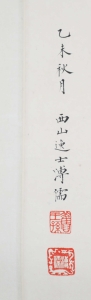 乙未秋月
西山逸士溥儒